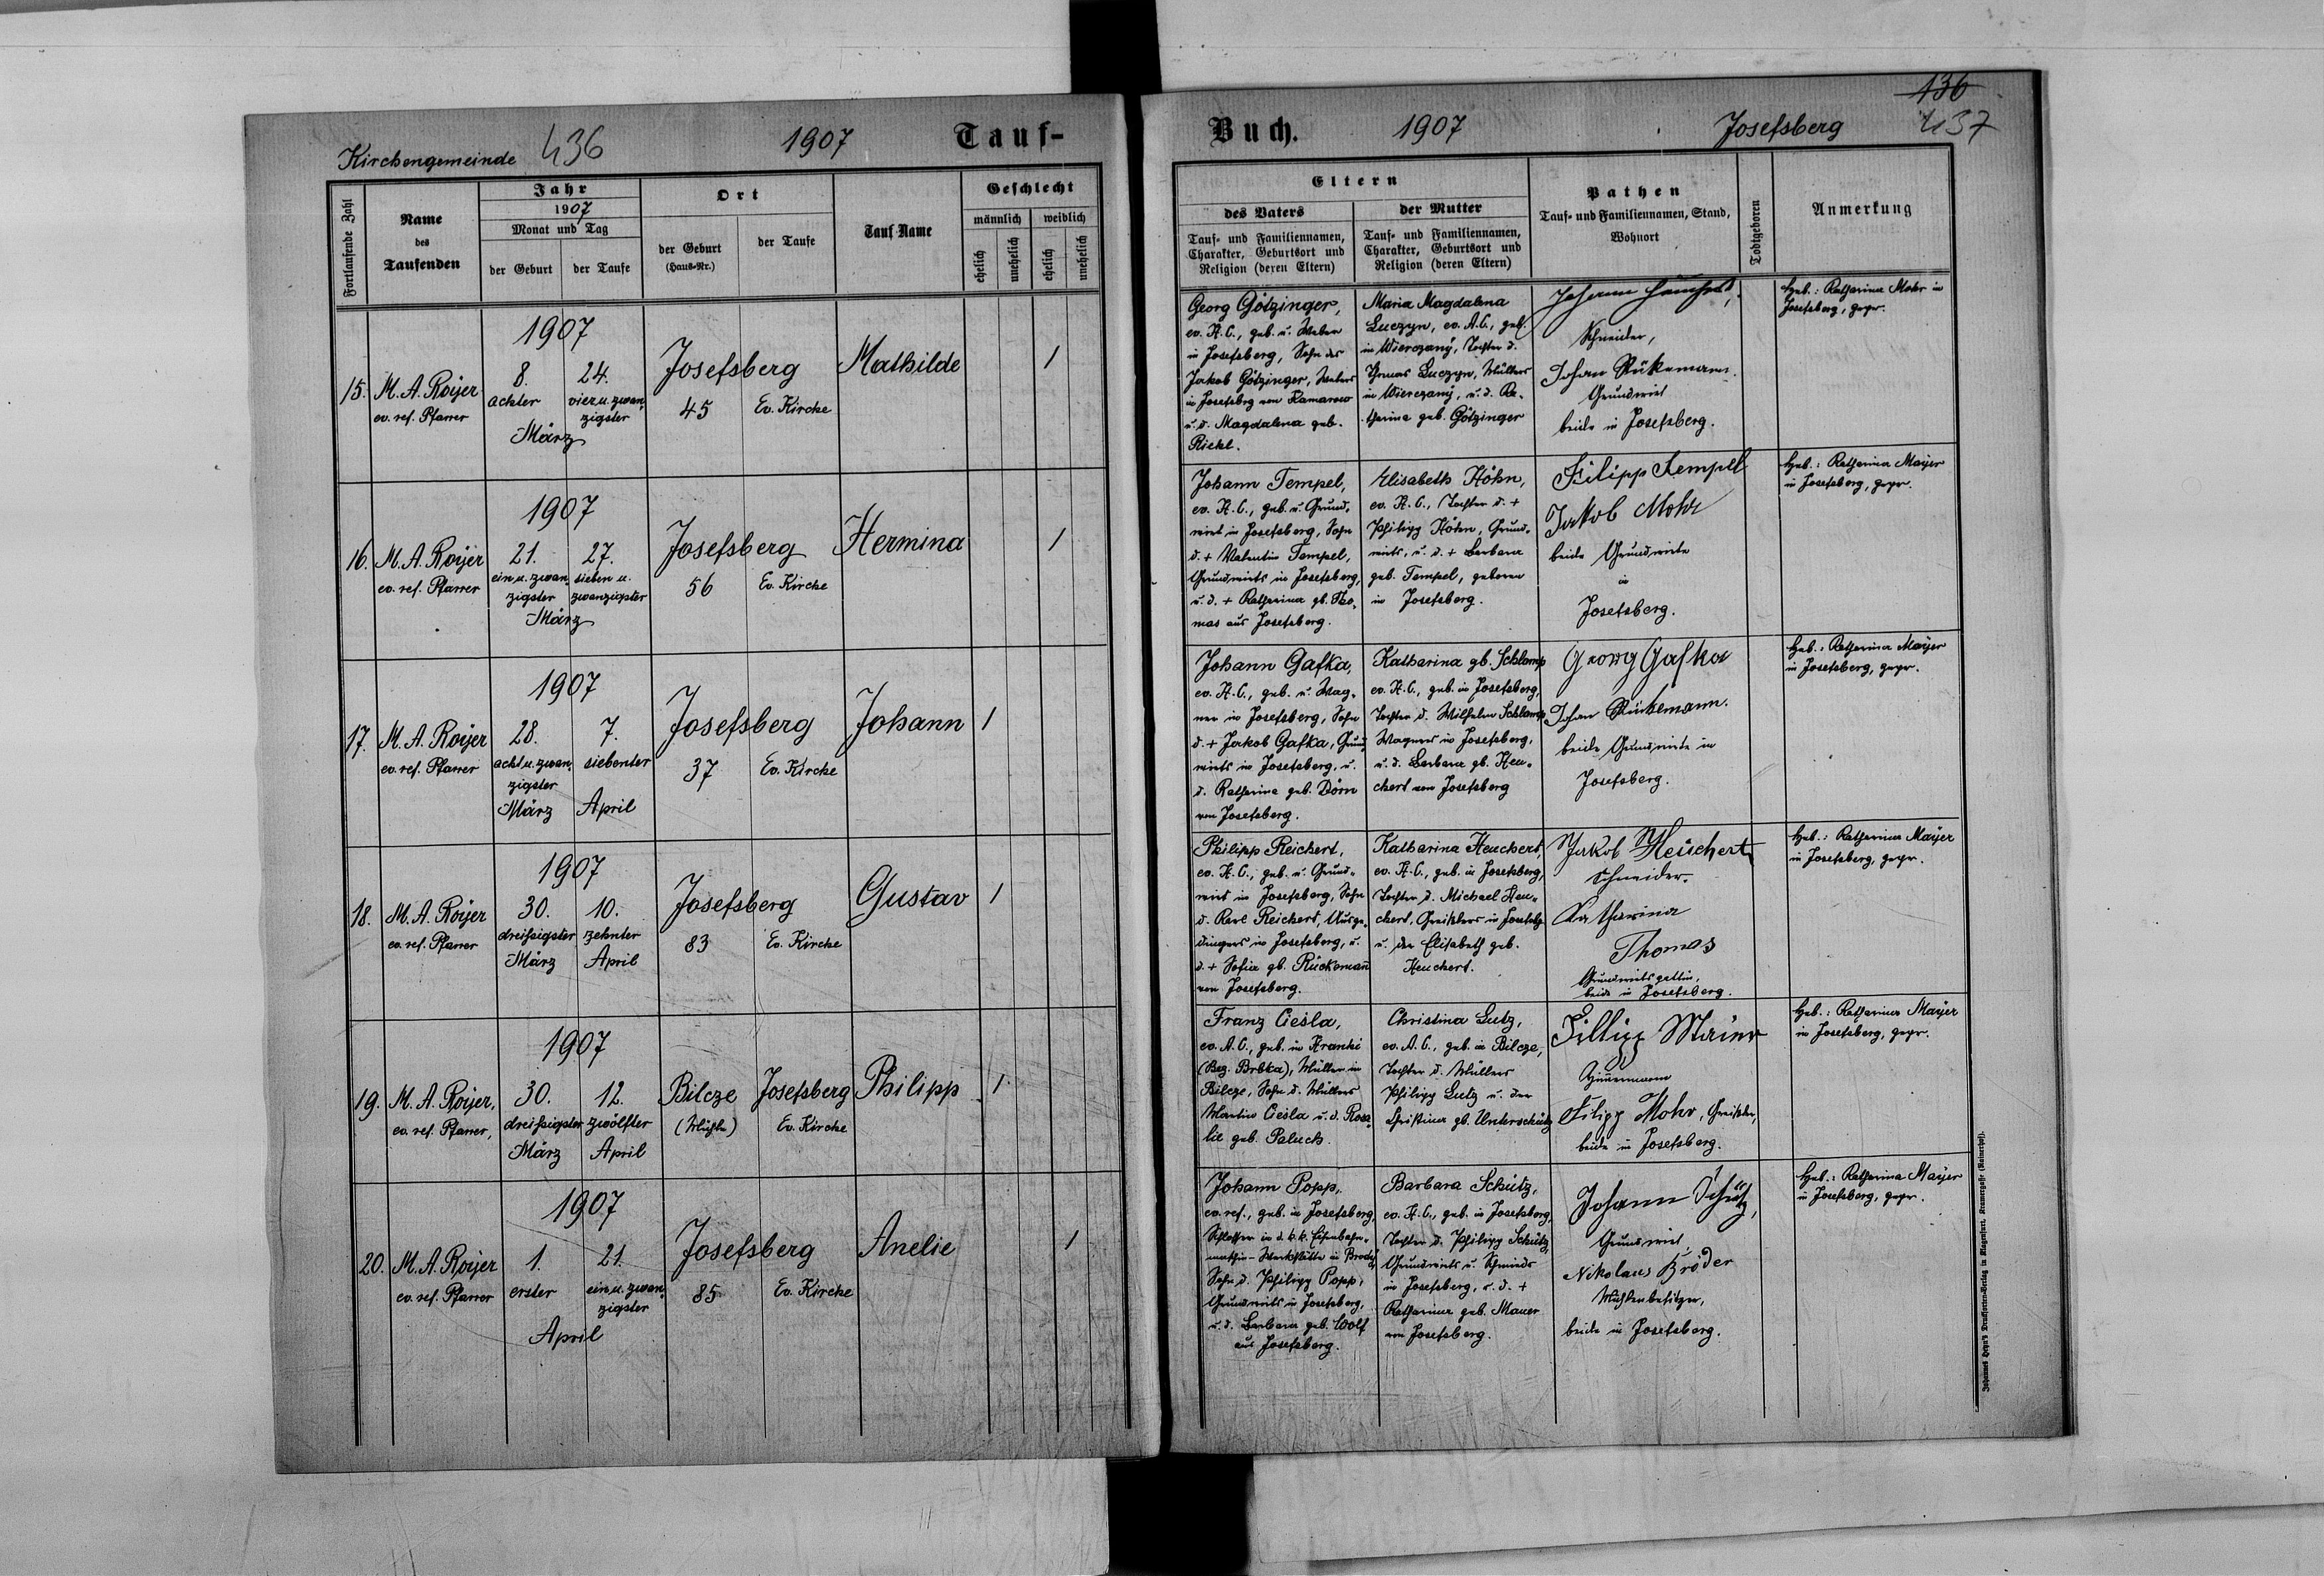 Kirchengemeinde 436 1907 Tauf-
Fortlaufende Zahl
Name
des
Taufenden
Jahr
1907
Monat und Tag
der Geburt
der Taufe
Ort
der Geburt
(Haus-Nr.)
der Taufe
Tauf Name
Geschlecht
männlich
weiblich
ehelich
unehelich
ehelich
unehelich
15.
M. A. Royer
ev. ref. Pfarrer
1907
8. 24.
achter vier u. zwan-
zigster
März
Josefsberg
45 Ev. Kirche
Mathilde
1
16.
M. A. Royer
ev. ref. Pfarrer
1907
21. 27.
ein u. zwan- sieben u.
zigster zwanzigster
März
Josefsberg
56 Ev. Kirche
Hermina
1
17.
M. A. Royer
ev. ref. Pfarrer
1907
28. 7.
acht u. zwan- siebenter
zigster
März April
Josefsberg
37 Ev. Kirche
Johann
1
18.
M. A. Royer
ev. ref. Pfarrer
1907
30. 10.
dreissigster zehnter
März April
Josefsberg
83 Ev. Kirche
Gustav
1
19.
M. A. Royer,
ev. ref. Pfarrer,
1907
30. 12.
dreissigster zwölfter
März April
Bilcze Josefsberg
(Mühle) Ev. Kirche
Philipp
1
20.
M. A. Royer
ev. ref. Pfarrer
1907
1. 21.
erster ein u. zwan-
zigster
April
Josefsberg
85 Ev. Kirche
Anelie
1
136
Buch. 1907 Josefsberg 437
Eltern
des Vaters
Tauf- und Familiennamen,
Charakter, Geburtsort und
Religion (deren Eltern)
der Mutter
Tauf- und Familiennamen,
Charakter, Geburtsort und
Religion (deren Eltern)
Pathen
Tauf- und Familiennamen, Stand,
Wohnort
Todtgeboren
Anmerkung
Georg Götzinger,
ev. H. C., geb. u. Weber
in Josefsberg, Sohn des
Jakob Götzinger, Webers
in Josefsbrg von Kamarowo
u. d. Magdalena geb.
Rickl.
Maria Magdalena
Luczyn, ev. A. C., geb.
in Wierczany, Tochter d.
Thomas Luczyn, Müllers
in Wierczany, u. d. Ka-
tharina geb. Götzinger
Johann
Schneider,
Johan Rükemann.
Grundwirt
beide in Josefsberg.
Heb.: Katharina Mohr in
Josefsberg, gepr.
Johann Tempel,
ev. H. C., geb. u. Grund-
wirt in Josefsberg, Sohn
d. + Valentin Tempel,
Grundwirts in Josefsberg,
u. d. + Katharina gb. Tho-
mas aus Josefsberg.
Elisabeth Höhn,
ev. H. C., Tochter d. +
Philipp Höhn, Grund-
wirts, u. d. + Barbara
geb. Tempel, geboren
in Josefsberg.
Filipp Tempel
Jakob Mohr
beide Grundwirte
in
Josefsberg.
Heb.: Katharina Mayer
in Josefsberg, gepr.
Johann Gafka,
ev. H. C., geb. u. Wag-
ner in Josefsberg, Sohn
d. + Jakob Gafka, Grund-
wirts in Josefsberg, u.
d. Katharina geb. Dörn
von Josefsberg.
Katharina gb. Schlamp
ev. H. C., geb. in Josefsberg,
Tochter d. Wilhelm Schlamp,
Wagners in Josefsberg,
u. d. Barbara gb. Heu-
chert von Josefsberg
Georg Gafka
Johan Rükemann.
beide Grundwirte in
Josefsberg.
Heb.: Katharina Mayer
in Josefsberg, gepr.
Philipp Reichert,
ev. H. C., geb. u. Grund-
wirt in Josefsberg, Sohn
d. Karl Reichert, Ausge-
dingers in Josefsberg, u.
d. + Sofia gb. Rückemañ
von Josefsberg.
Katharina Heuchert,
ev. H. C., geb. in Josefsberg,
Tochter d. Michael Heu-
chert, Greißlers in Josefsbg.
u. der Elisabeth geb.
Heuchert.
Jakob Heuchert
Schneider.
Katharina
Thomas
Grundwirtsgattin,
beide in Josefsberg.
Heb.: Katharina Mayer
in Josefsberg, gepr.
Franz Cieśla,
ev. A. C., geb. in Hranki
(Bez. Bóbrka), Müller in
Bilcze, Sohn d. Müllers
Martin Cieśla u. d. Rosa-
lie geb. Paluch.
Christina Lutz,
ev. A. C., geb. in Bilcze,
Tochter d. Müllers
Philipp Lutz u. der
Christina gb. Unterschütz
Fillipp
Zimmermann
Filipp Mohr, Greißler,
beide in Josefsberg.
Heb.: Katharina Mayer
in Josefsberg, gepr.
Johann Popp,
ev. ref., geb. in Josefsberg,
Schlosser in d. k. k. Eisenbahn-
Werkstätte in Brody
Sohn d. Philipp Popp,
Grundwirts in Josefsberg,
u. d. Barbara geb. Wolf
aus Josefsberg.
Barbara Schütz,
ev. H. C., geb. in Josefsberg,
Tochter d. Philipp Schütz,
Grundwirts u. Schmieds
in Josefsberg, u. d. +
Katharina geb. Mauer
von Josefsberg.
Johann Schütz,
Grundwirt,
Nikolaus Bröder
Mühlenbesitzer,
beide in Josefsberg.
Heb.: Katharina Mayer
in Josefsberg, gepr.
Johannes Heyn's Drucksorten-Verlag in Klagenfurt, Kramergasse (Rainerhof).